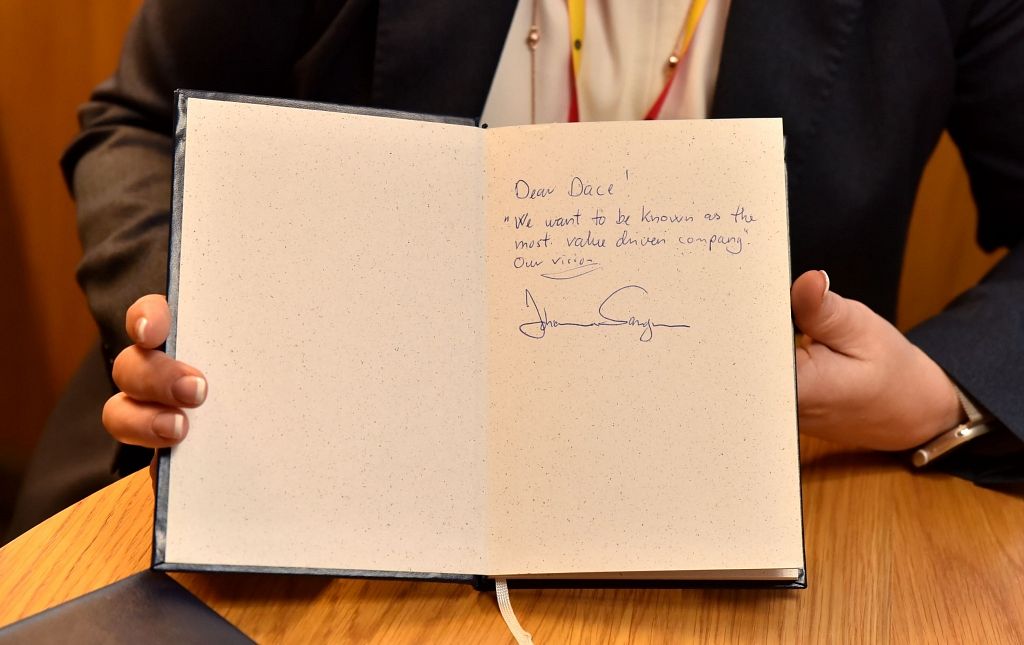 Dear Dace!
"We want to be known as the
most value driven company".
Our vision